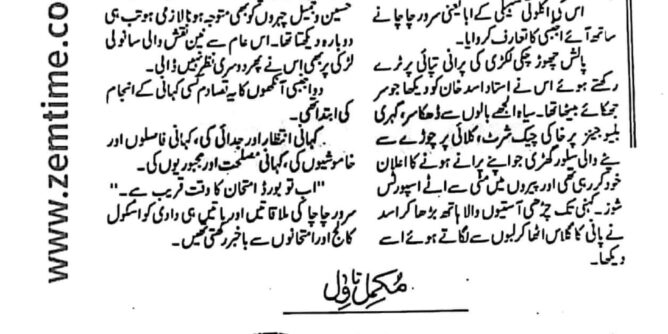 اس کی اکلوتی سہیلی کے ابا یعنی سرور چاچا نے
ساتھ آئے اجنبی کا تعارف کروایا۔
پالش چھوڑ چکی لکڑی کی پرانی تپائی پر ٹرے
رکھتے ہوئے اس نے استاد اسد خان کو دیکھا جو سر
جھکائے بیٹھا تھا۔ سیاہ الجھے بالوں سے ڈھکا سر، گہری
بلیو جینز پر خاکی چیک شرٹ، کلائی پر چوڑے سے
پٹے والی سلور گھڑی جو اپنے پرانے ہونے کا اعلان
خود کر رہی تھی اور پیروں میں مٹی سے اٹے اسپورٹس
شوز۔ کہنی تک چڑھی آستیوں والا ہاتھ بڑھا کر اسد
نے پانی کا گلاس اٹھا کر لبوں سے لگاتے ہوئے اسے
دیکھا۔
حسین و جمیل چہروں کو بھی متوجہ ہونا لازمی ہو تب ہی
دوبارہ دیکھتا تھا۔ اس عام سے نین نقش والی سانولی
لڑکی پر بھی اس نے پھر دوسری نظر نہیں ڈالی۔
دو اجنبی آنکھوں کا یہ تصادم کسی کہانی کے انجام
کی ابتدا تھی۔
کہانی انتظار اور جدائی کی، کہانی فاصلوں اور
خاموشیوں کی، کہانی مصلحت اور مجبوریوں کی۔
"اب تو بورڈ امتحان کا وقت قریب ہے۔"
سرور چاچا کی ملاقاتیں اور باتیں ہی وادی کو اسکول
کالج اور امتحانوں سے باخبر رکھتی تھیں۔
مکمل ناول
www.zemtime.co